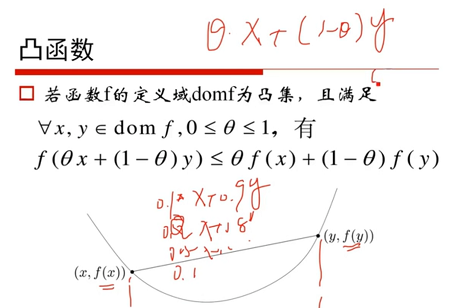 θ·x+(1-θ)y
凸函数
若函数f的定义域domf为凸集，且满足
∀x, y ∈ dom f, 0 ≤ θ ≤ 1，有
f(θx + (1−θ)y) ≤ θf(x) + (1−θ)f(y)
0.1* x+0.9y
(y, f(y))
(x, f(x))
0.1